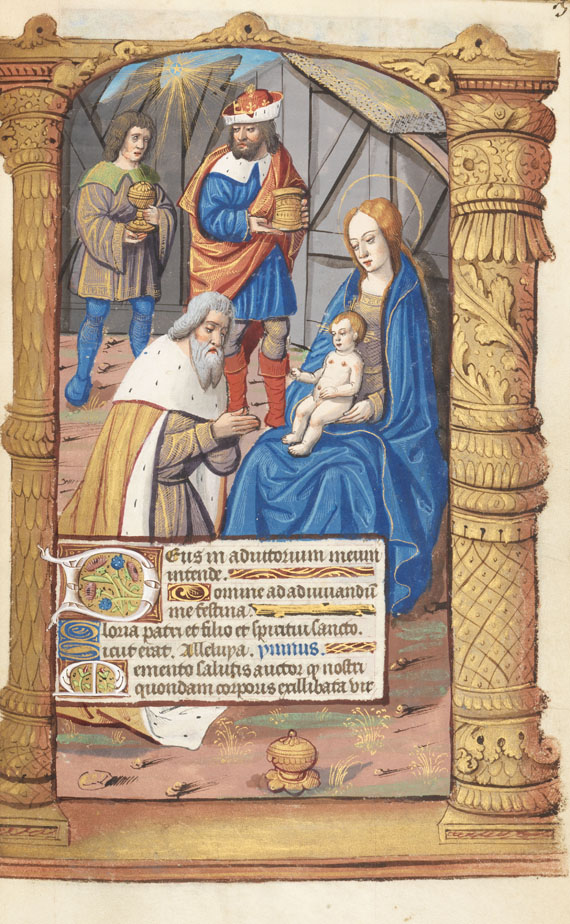 Deus in adiutorium meum
intende.
Domine ad adiuuandū
me festina.
Gloria patri et filio et spiritui sancto.
Sicut erat. Alleluya. ymnus.
Memento salutis auctor qꝫ nostri
quondam corporis ex illibata vir